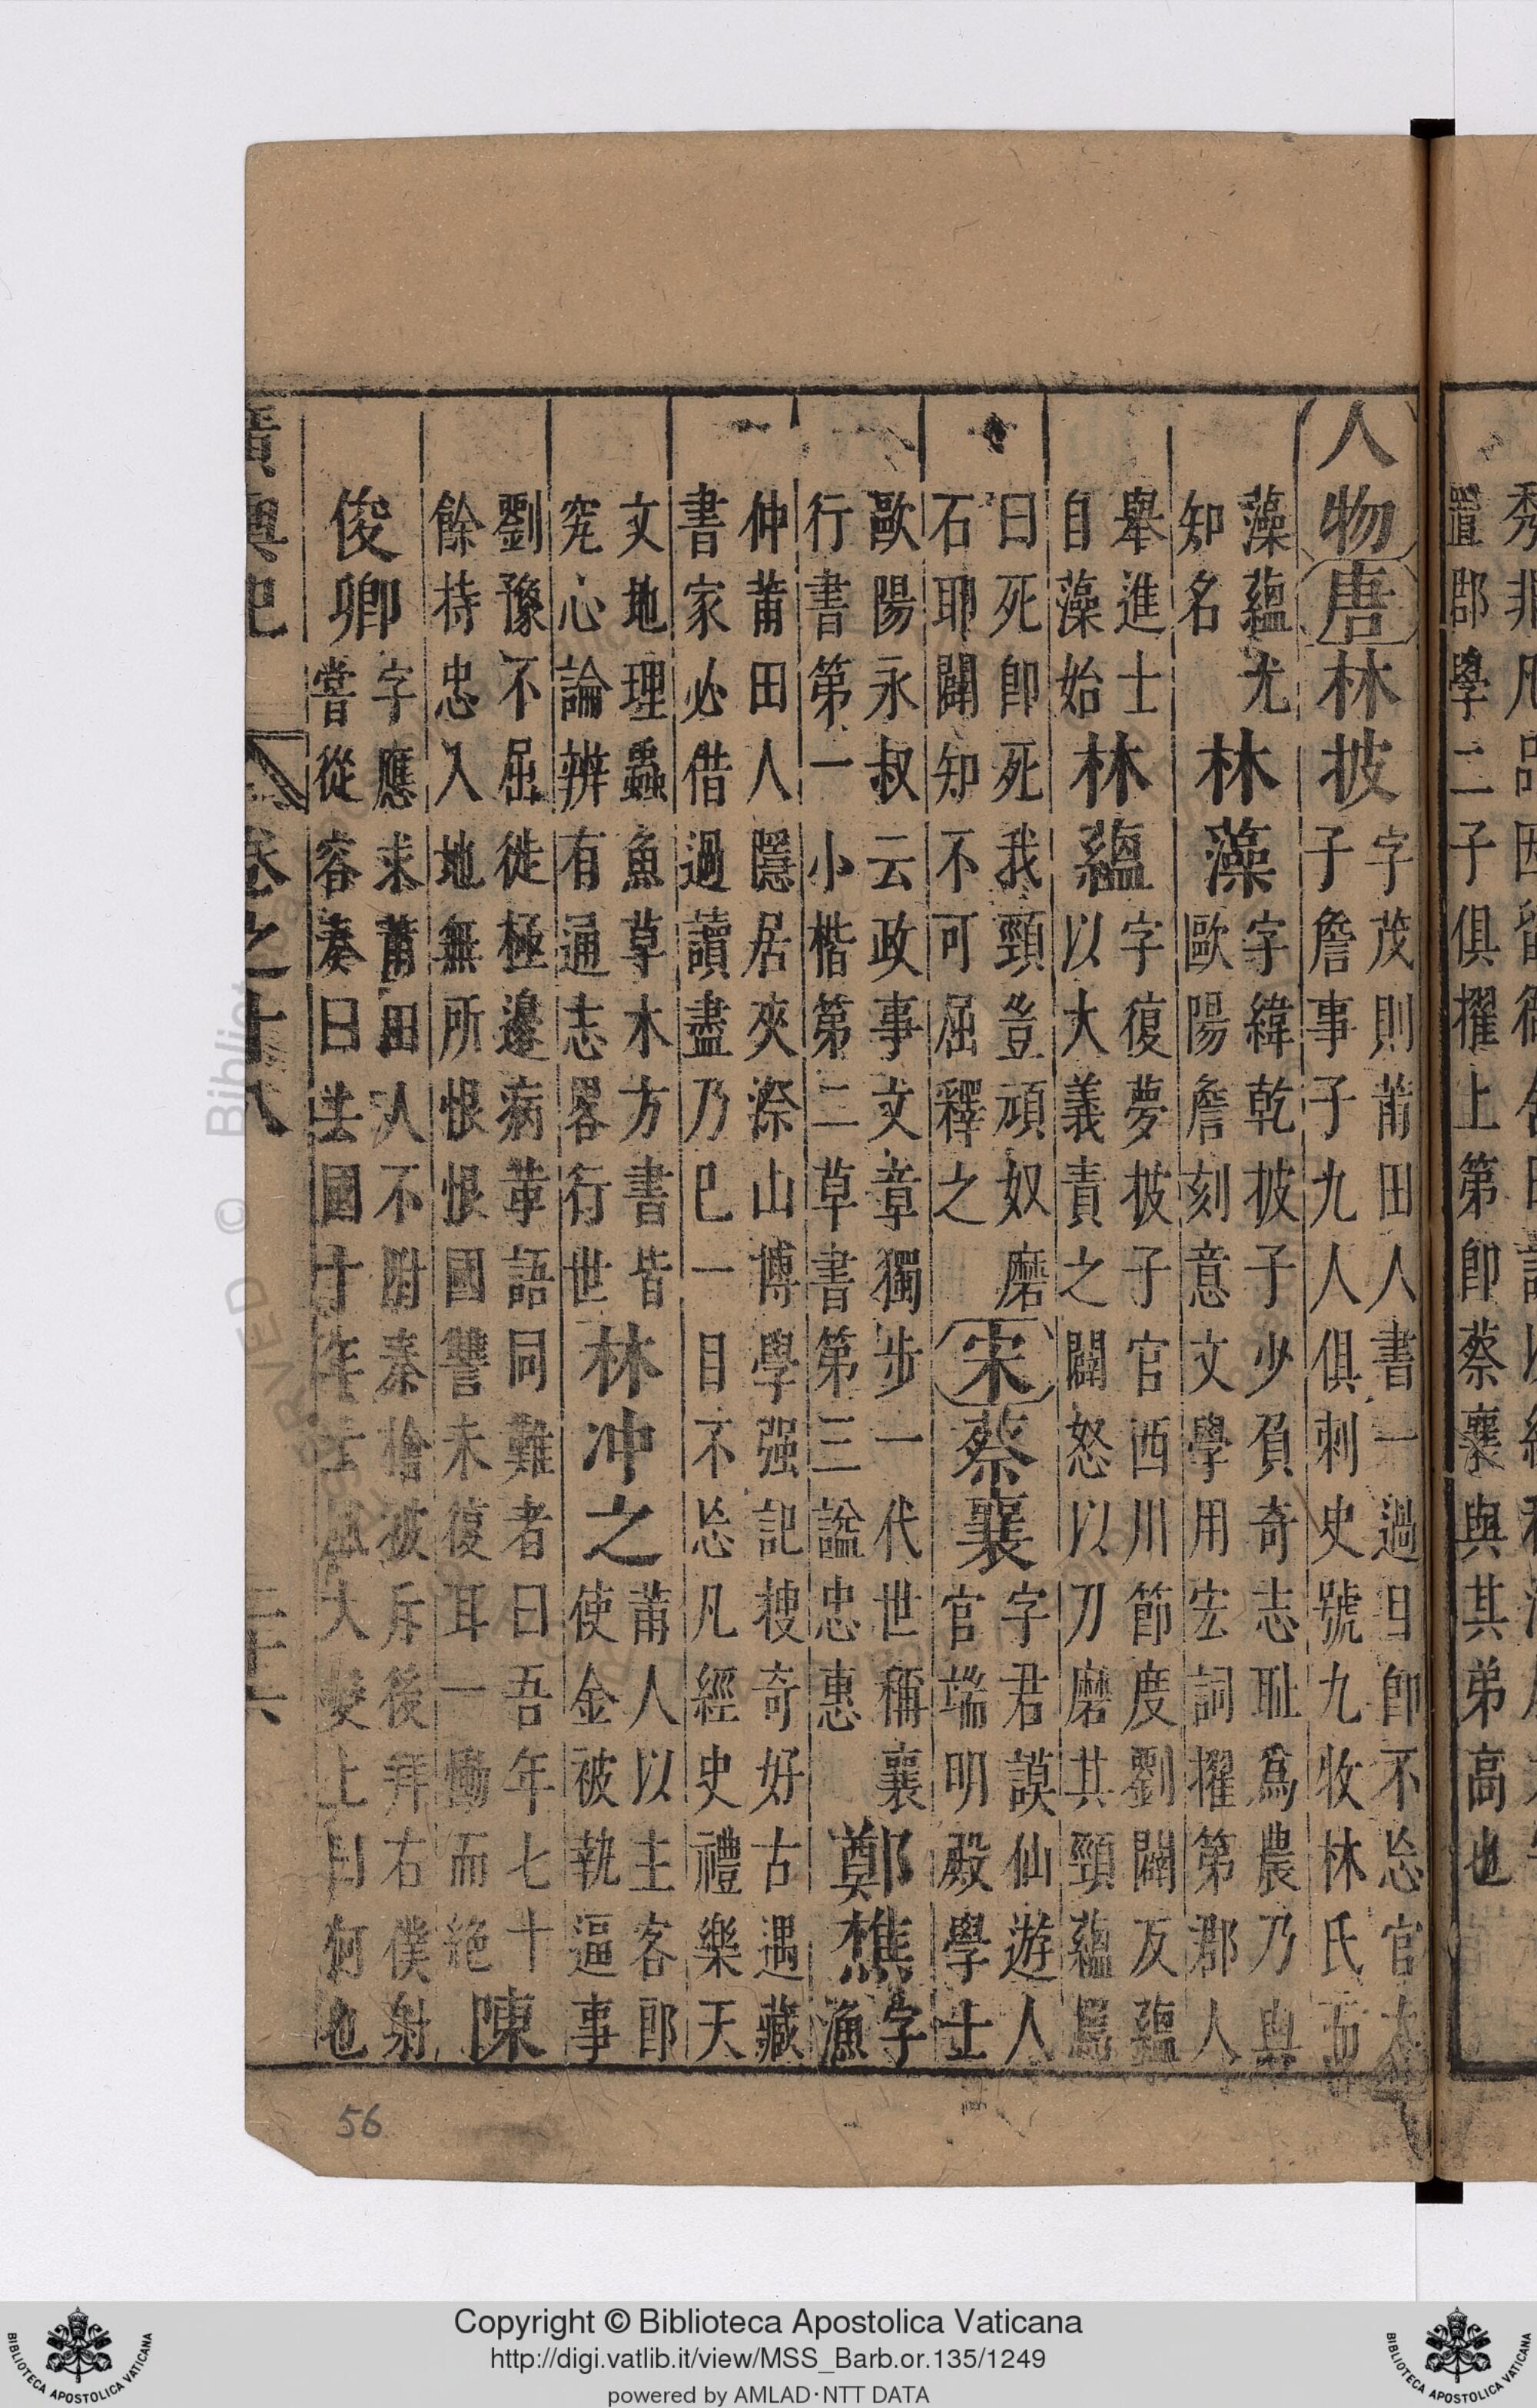 置郡學二子俱擢上第卽蔡襄與其弟高也
人物 唐 林披 字茂則莆田人書一過目卽不忘官太
子詹事子九人俱刺史號九牧林氏五
藻蘊尤
知名 林藻 字緯乾披子少負奇志耻爲農乃與
歐陽詹刻意文學用宏詞擢第郡人
舉進士
自藻始 林蘊 字復夢披子官西川節度劉闢反蘊
以大義責之闢怒以刀磨其頸蘊罵
曰死卽死我頸豈頑奴磨
石耶闢知不可屈釋之 宋 蔡襄 字君謨仙遊人
官端明殿學士
歐陽永叔云政事文章獨步一代世稱襄
行書第一小楷第二草書第三諡忠惠 鄭樵 字
漁
仲莆田人隱居夾漈山博學强記搜奇好古遇藏
書家必借過讀盡乃已一目不忘凡經史禮樂天
文地理蟲魚草木方書皆
究心論辨有通志畧行世 林冲之 莆人以主客郎
使金被執逼事
劉豫不屈徙極邊病革語同難者曰吾年七十
餘持忠入地無所恨恨國讐未復耳一慟而絶 陳
俊卿 字應求莆田人不附秦檜被斥後拜右僕射
嘗從容奏曰去國十年士風大變上曰何也
廣輿記 卷之十八
56
Copyright © Biblioteca Apostolica Vaticana
http://digi.vatlib.it/view/MSS_Barb.or.135/1249
powered by AMLAD·NTT DATA
BIBLIOTECA APOSTOLICA VATICANA
BIBLIOTECA APOSTOLICA VATICANA